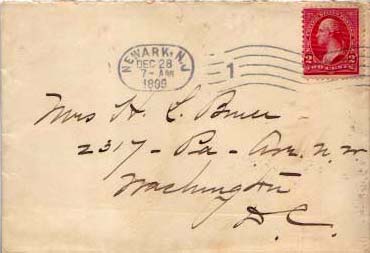 NEWARK, N.J.
DEC 28
7-AM
1899
1
2 TWO CENTS 2
Mrs H. L. Bruen
2317 - Pa - Ave. N.W
Washington
D.C.